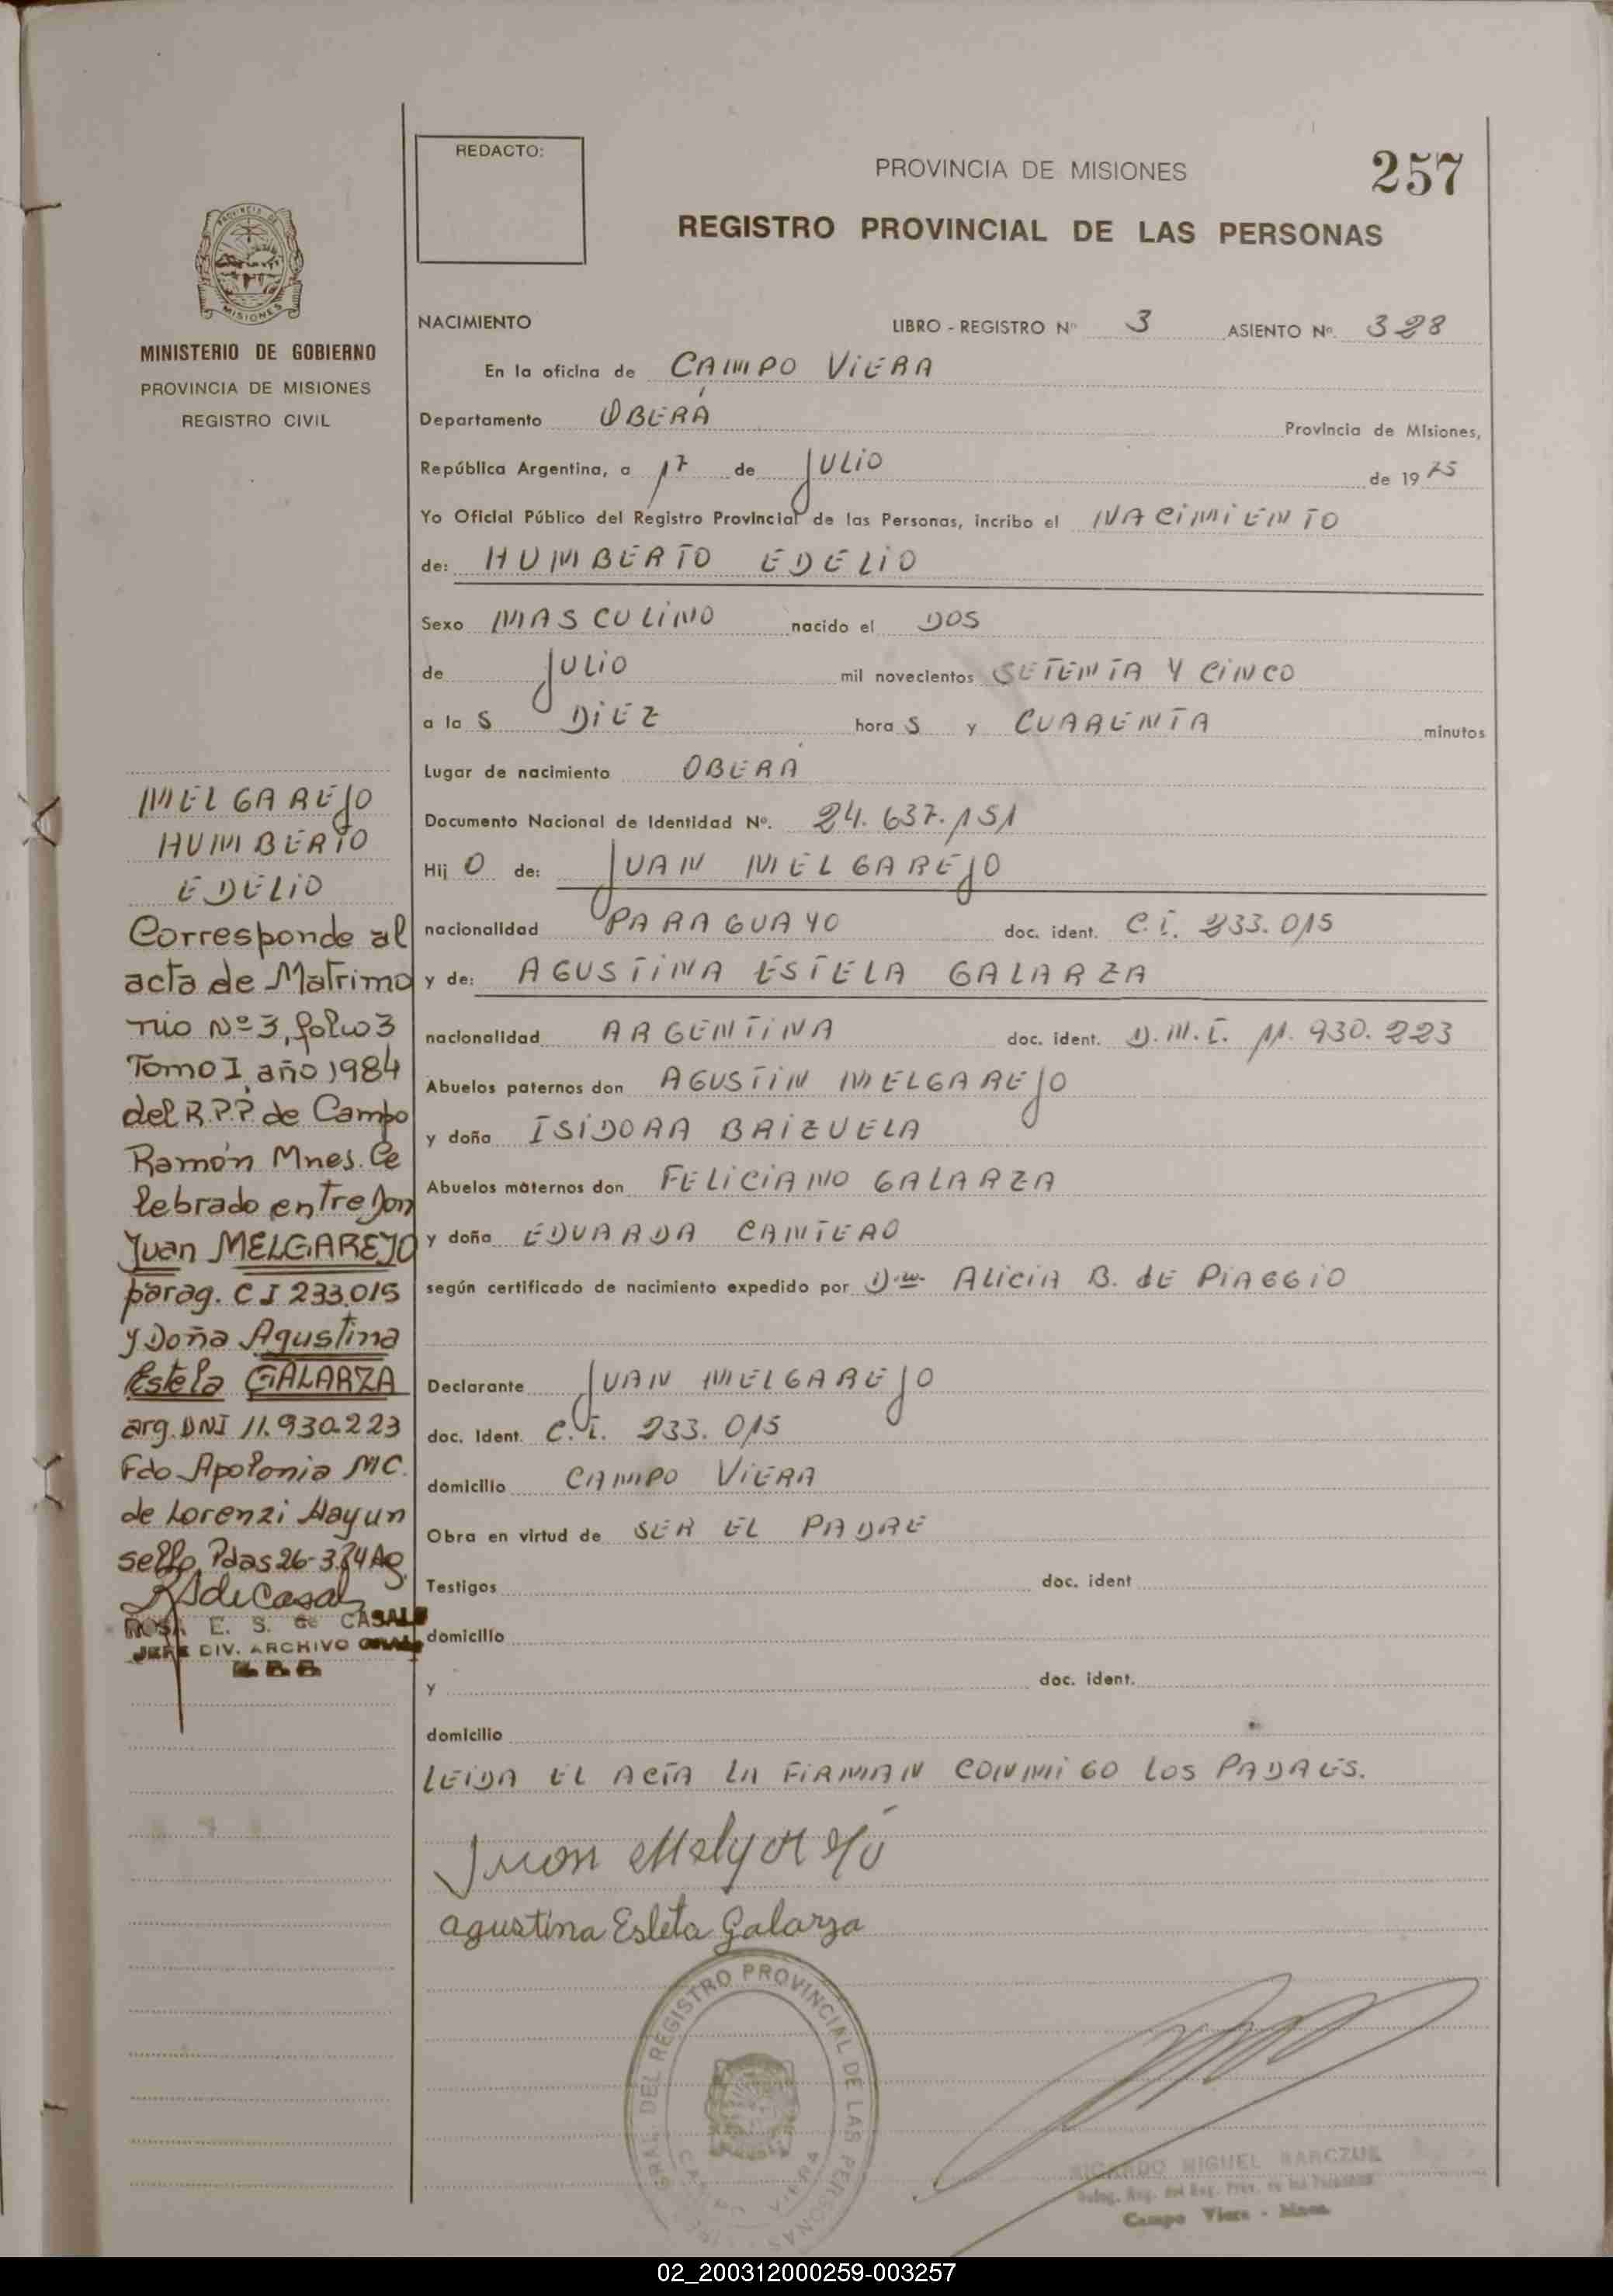 REDACTO:
PROVINCIA DE MISIONES
257
REGISTRO PROVINCIAL DE LAS PERSONAS
PROVINCIA DE
MISIONES
MINISTERIO DE GOBIERNO
PROVINCIA DE MISIONES
REGISTRO CIVIL
NACIMIENTO LIBRO - REGISTRO Nº 3 ASIENTO Nº. 328
En la oficina de CAMPO VIERA
Departamento OBERÁ Provincia de Misiones,
República Argentina, a 17 de JULIO de 1975
Yo Oficial Público del Registro Provincial de las Personas, incribo el NACIMIENTO
de: HUMBERTO EDELIO
Sexo MASCULINO nacido el DOS
de JULIO mil novecientos SETENTA Y CINCO
a la S DIEZ hora S y CUARENTA minutos
Lugar de nacimiento OBERÁ
Documento Nacional de Identidad Nº. 24.637.151
Hij O de: JUAN MELGAREJO
nacionalidad PARAGUAYO doc. ident. C.I. 233.015
y de: AGUSTINA ESTELA GALARZA
nacionalidad ARGENTINA doc. ident. D.N.I. 11.930.223
Abuelos paternos don AGUSTIN MELGAREJO
y doña ISIDORA BRIZUELA
Abuelos maternos don FELICIANO GALARZA
y doña EDUARDA CANTERO
según certificado de nacimiento expedido por ALICIA B. DE PIAGGIO
Declarante JUAN MELGAREJO
doc. Ident. C.I. 233.015
domicilio CAMPO VIERA
Obra en virtud de SER EL PADRE
Testigos doc. ident
domicilio
y doc. ident.
domicilio
LEIDA EL ACTA LA FIRMAN CONMIGO LOS PADRES.
Juan Melgarejo
agustina Estela Galarza
MELGAREJO
HUMBERTO
EDELIO
Corresponde al
acta de Matrimo
nio Nº 3, folio 3
Tomo I, año 1984
del R.P.P. de Campo
Ramón Mnes. Ce
lebrado entre Don
Juan MELGAREJO
parag. C I 233.015
y Doña Agustina
Estela GALARZA
arg. DNI 11.930.223
Fdo Apolonia MC.
de Lorenzi Hayun
sello. Pdas 26-3-84
ROSA E. S. de CASALS
JEFE DIV. ARCHIVO GRAL
GRAL DEL REGISTRO PROVINCIAL DE LAS PERSONAS
RICARDO MIGUEL MARCZUK
Campo Viera - Mnes.
02_200312000259-003257